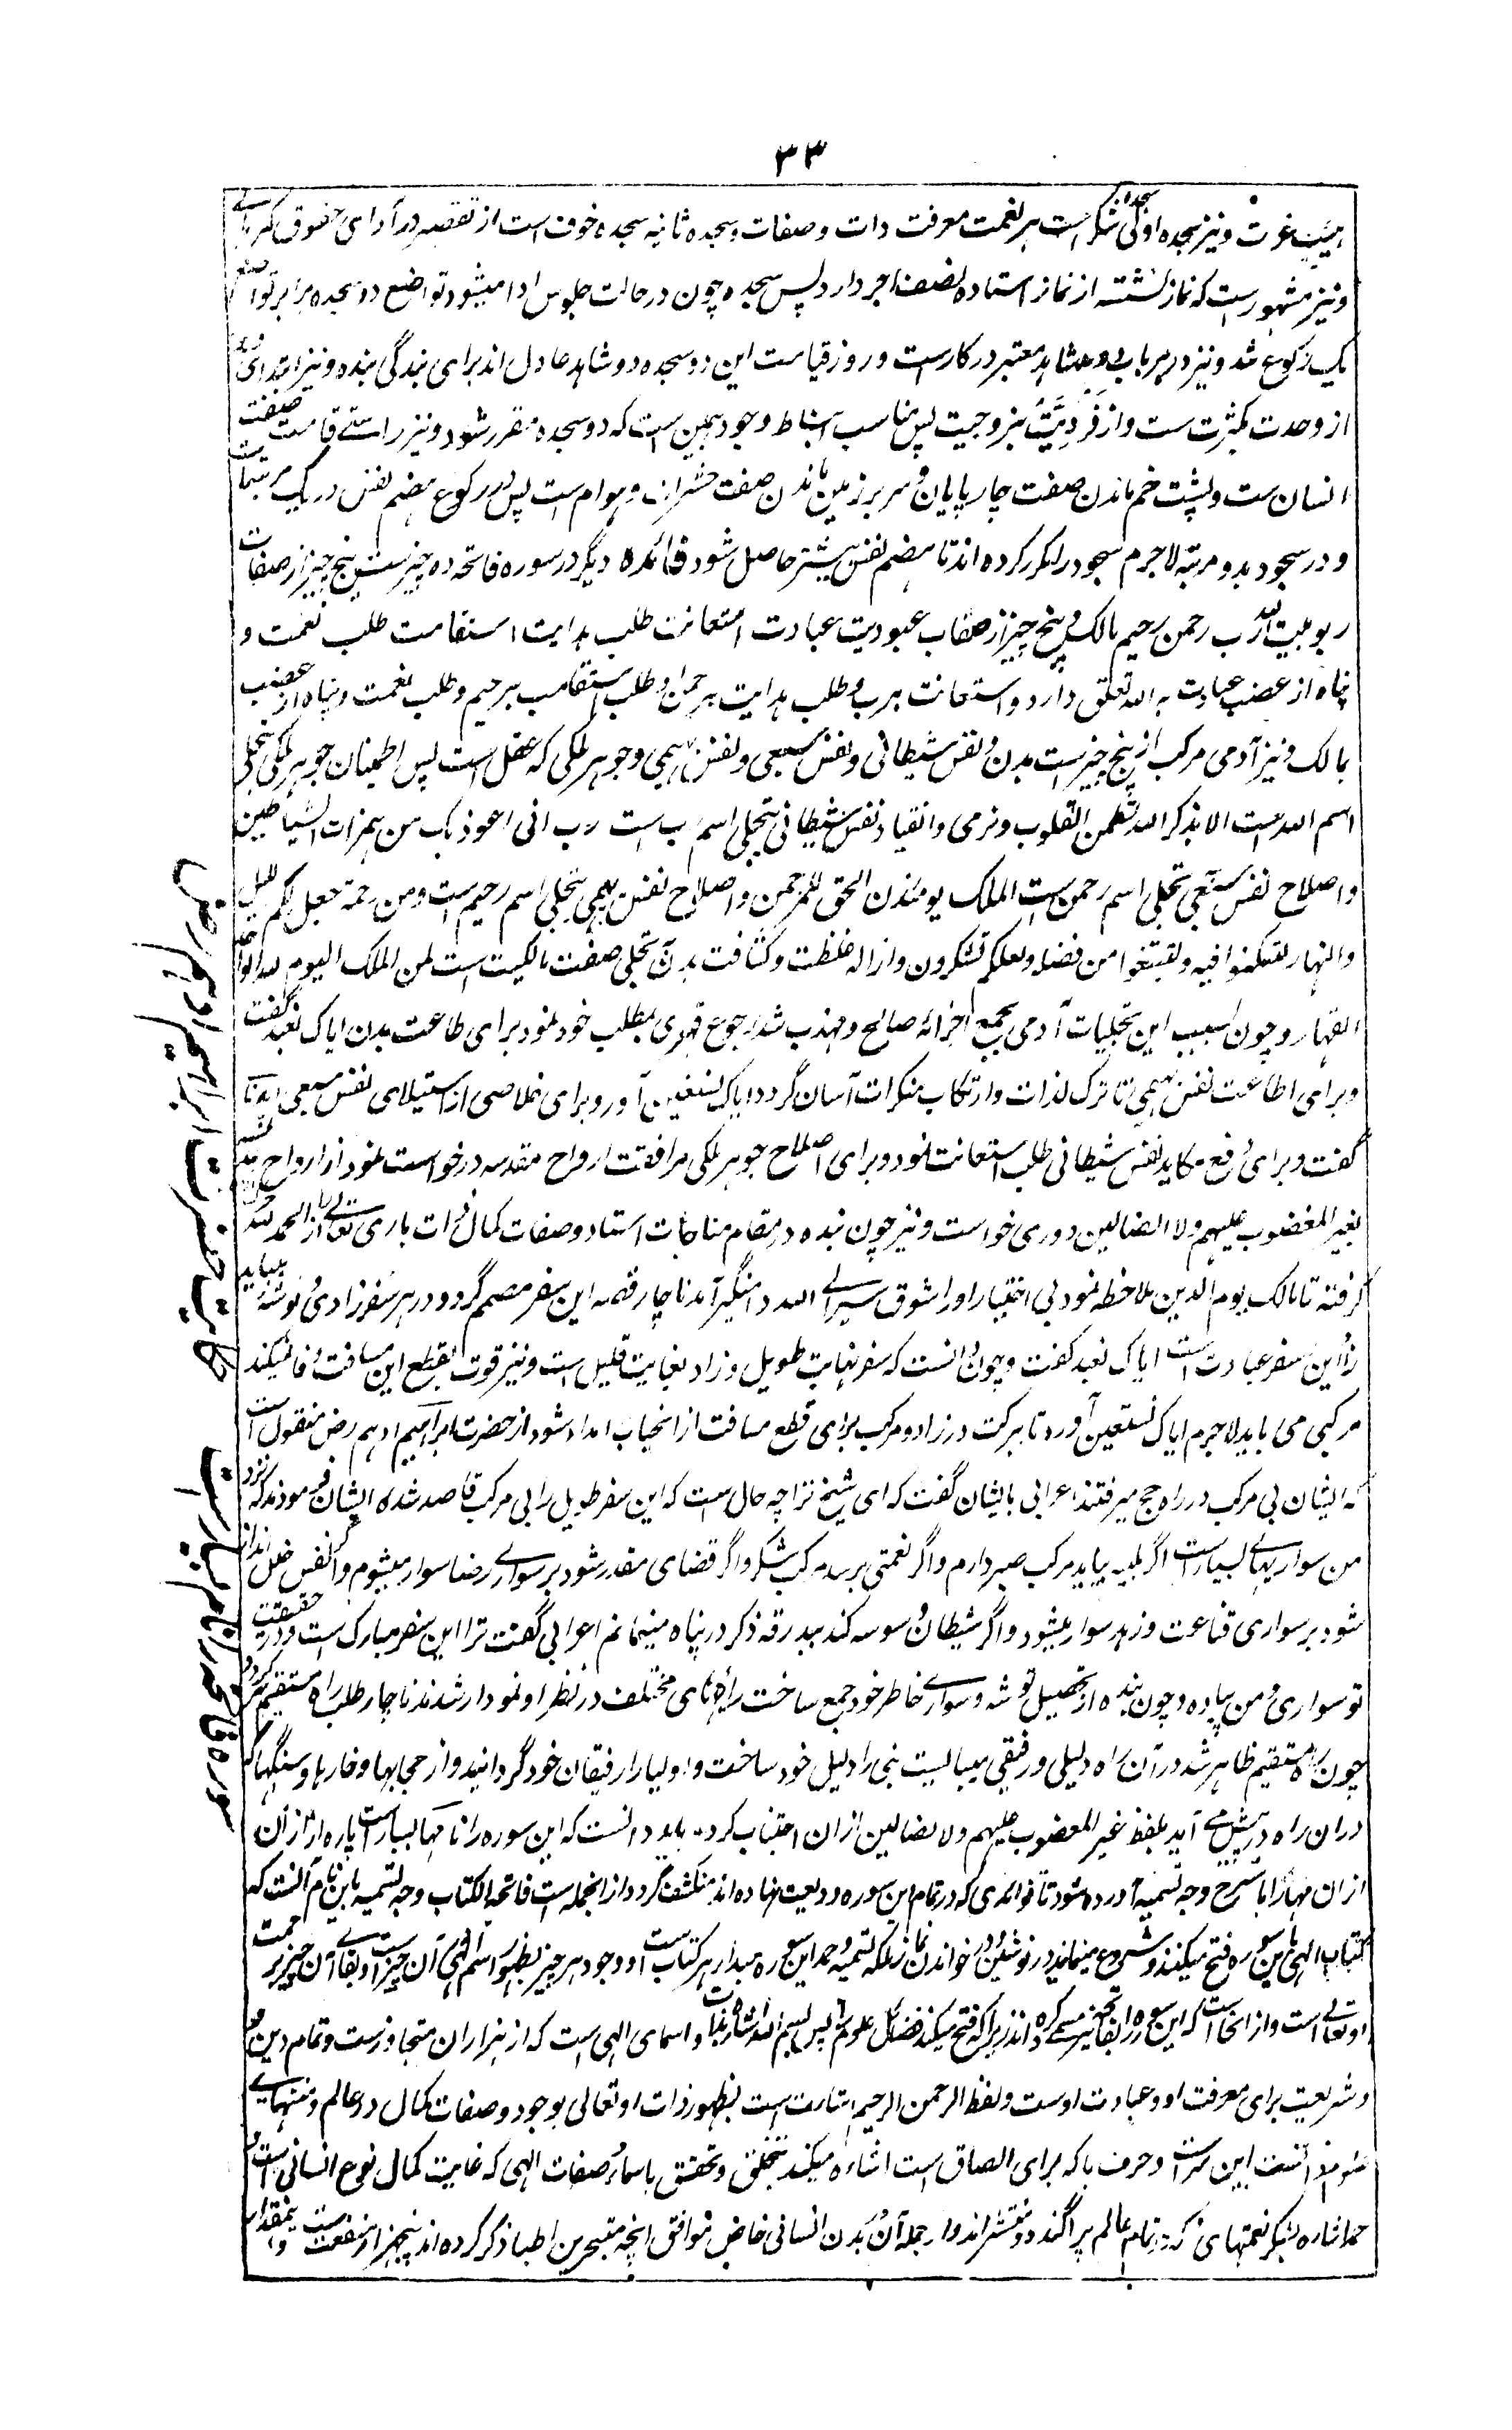 ٣٣
هیبت عزت و نیز سجده اولی سجده شکر است بر نعمت معرفت ذات و صفات و سجده ثانیه سجده خوف است از تقصیر در آدای حقوق کبریائے
و نیز مشهور است که نماز نشسته از نماز استاده نصف اجر دارد پس سجده چون در حالت جلوس ادا میشود تواضع دو سجده برابر تواضع
یک رکوع شد و نیز در هر باب دو شاهد معتبر در کار است و روز قیامت این دو سجده دو شاهد عادل اند برای بندگی بنده و نیز ابتدای
از وحدت بکثرت ست و از فردیت بزوجیت پس مناسب انبساط وجود همین است که دو سجده مقرر شود و نیز راستے قامت صفت
انسان ست و پشت خم ماندن صفت چارپایان و سر بر زمین ماندن صفت حشرات و هوام است پس در رکوع هضم نفس در یک مرتبه است
و در سجود بدو مرتبه لاجرم سجود را مکرر کرده اند تا هضم نفس بیشتر حاصل شود فائده دیگر در سوره فاتحه ده چیز ست پنج چیز از صفات
ربوبیت الله رب رحمن رحیم مالک و پنج چیز از صفات عبودیت عبادت استعانت طلب هدایت استقامت طلب نعمت و
پناه از غضب عبادت به الله تعلق دارد و استعانت برب و طلب هدایت برحمن و طلب استقامت برحیم و طلب نعمت و پناه از غضب
بمالک و نیز آدمی مرکب از پنج چیز است بدن و نفس شیطانی و نفس سبعی و نفس بهیمی و جوهر ملکی که عقل است پس اطمینان جوهر ملکی بتجلی
اسم الله است الا بذکر الله تطمئن القلوب و نرمی و انقیاد نفس شیطانی بتجلی اسم رب است رب انی اعوذ بک من همزات الشیاطین
و اصلاح نفس سبعی بتجلی اسم رحمن ست الملک یومئذن الحق للرحمن و اصلاح نفس بهیمی بتجلی اسم رحیم است و من رحمة جعل لکم اللیل
والنهار لتسکنوا فیه ولتبتغوا من فضله ولعلکم تشکرون و ازاله غلظت و کثافت بدن بتجلی صفت مالکیت است لمن الملک الیوم لله الواحد
القهار و چون بسبب این تجلیات آدمی بجمیع اجزائه صالح و مهذب شد رجوع قهری بمطلب خود نمود برای طاعت بدن ایاک نعبد گفت
و برای اطاعت نفس بهیمی تا ترک لذات و ارتکاب منکرات آسان گردد ایاک نستعین آورد و برای خلاصی از استیلای نفس سبعی اهدنا
گفت و برای رفع مکاید نفس شیطانی طلب استعانت نمود و برای اصلاح جوهر ملکی مرافقت ارواح مقدسه درخواست نمود از ارواح
بغیر المغضوب علیهم ولا الضالین دوری خواست و نیز چون بنده در مقام مناجات استاد و صفات کمال ذات باری تعالے را از الحمد لله
گرفته تا مالک یوم الدین ملاحظه نمود بی اختیار او را شوق سیر الی الله دامنگیر آمد ناچار قصد این سفر مصمم گرد و در هر سفر زادی و توشه میباید
زاد این سفر عبادت است ایاک نعبد گفت و چون دانست که سفر نهایت طویل و زاد بغایت قلیل است و نیز قوت بقطع این مسافت وفا نمیکند
مرکبی می باید لاجرم ایاک نستعین آورد تا برکت در زاد و مرکب برای قطع مسافت از انجناب امداد شود از حضرت ابراهیم ادهم رض منقول است
که ایشان بی مرکب در راه حج میرفتند اعرابی بایشان گفت که ای شیخ ترا چه حال است که این سفر طویل را بی مرکب قاصد شده ایشان فرمودند که نزد
من سواریهاے بسیار است اگر بلیه بیاید مرکب صبر دارم و اگر نعمتی برسد مرکب شکر و اگر قضای مقدر شود بر سوارے رضا سوار میشوم و اگر نفس خلل انداز
شود بر سواری قناعت و زهد سوار میشود و اگر شیطان وسوسه کند ببدرقه ذکر در پناه مینمایم اعرابی گفت ترا این سفر مبارک ست و در حقیقت
تو سواری و من پیاده و چون بنده از تحصیل توشه و سوارے خاطر خود جمع ساخت راه های مختلف در نظر او نمودار شدند ناچار طلب راه مستقیم کرد و
چون راه مستقیم ظاهر شد در آن راه دلیلی و رفیقی میبایست نبی را دلیل خود ساخت و اولیا را رفیقان خود گردانید و از حجابها و خارها و سنگها که
دران راه در پیش مے آید بلفظ غیر المغضوب علیهم ولا الضالین ازان اجتناب کرد باید دانست که این سوره را نامها بسیار است پاره از ان
ازان نامها را با شرح وجه تسمیه آورده شود تا فوائدی که در تمام این سوره ودیعت نهاده اند منکشف گردد از انجمله است فاتحة الکتاب وجه تسمیه باین نام آنست که
کتاب الهی باین سوره فتح میکنند و شروع مینمایند در نوشتن و خواندن نماز بلکه تسمیه و حمد این سوره مبدا هر کتاب ست و وجود هر چیز بظهور اسم الهی آن چیز است و بقاے آن چیز بر حمت
او تعالے است و از انجا است که این سوره را بفاتحه نیز مسمے کرده اند زیراکه فتح میکند فضائل علوم را پس بسم الله اشارت بذات و اسمای الهی است که از هزاران متجاوز ست و تمام دین
و شریعت برای معرفت او و عبادت اوست و لفظ الرحمن الرحیم اشارت است بظهور ذات او تعالی بوجود و صفات کمال در عالم و منتهاے
علوم دانست این سرست و حرف با که برای الصاق است اشاره میکند بتخلق و تحقق باسماء و صفات الهی که غایت کمال نوع انسانی است و
حمد اشاره بشکر نعمتهای که در تمام عالم پراگنده و منتشر اند و از جمله آن در بدن انسانی خاص موافق انچه متبحرین اطبا ذکر کرده اند پنجهزار منفعت ست و انمقدار
حکایت حضرت ابراهیم ادهم رض
سوره فاتحه را نامها بسیار است